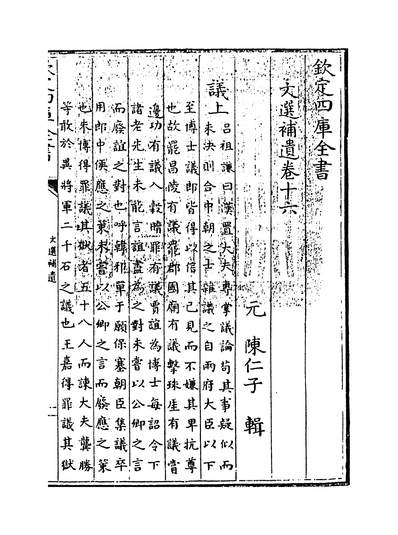 欽定四庫全書
文選補遺卷十六
元 陳仁子 輯
議上
呂祖謙曰漢置大夫專掌議論苟其事疑似而
未決則合中朝之士雜議之自兩府大臣以下
至博士議郎皆得以信其己見而不嫌其卑抗尊
也故罷昌陵有議罷郡國廟有議擊珠厓有議當
邊功有議入穀贖罪有議賈誼為博士每詔令下
諸老先生未能言誼盡為之對未嘗以公卿之言
而廢誼之對也呼韓邪單于願保塞朝臣集議卒
用郎中侯應之策未嘗以公卿之言而廢應之策
也朱博得罪議其獄者五十八人而諫大夫龔勝
等敢於異將軍二千石之議也王嘉得罪議其獄
欽定四庫全書
文選補遺
一